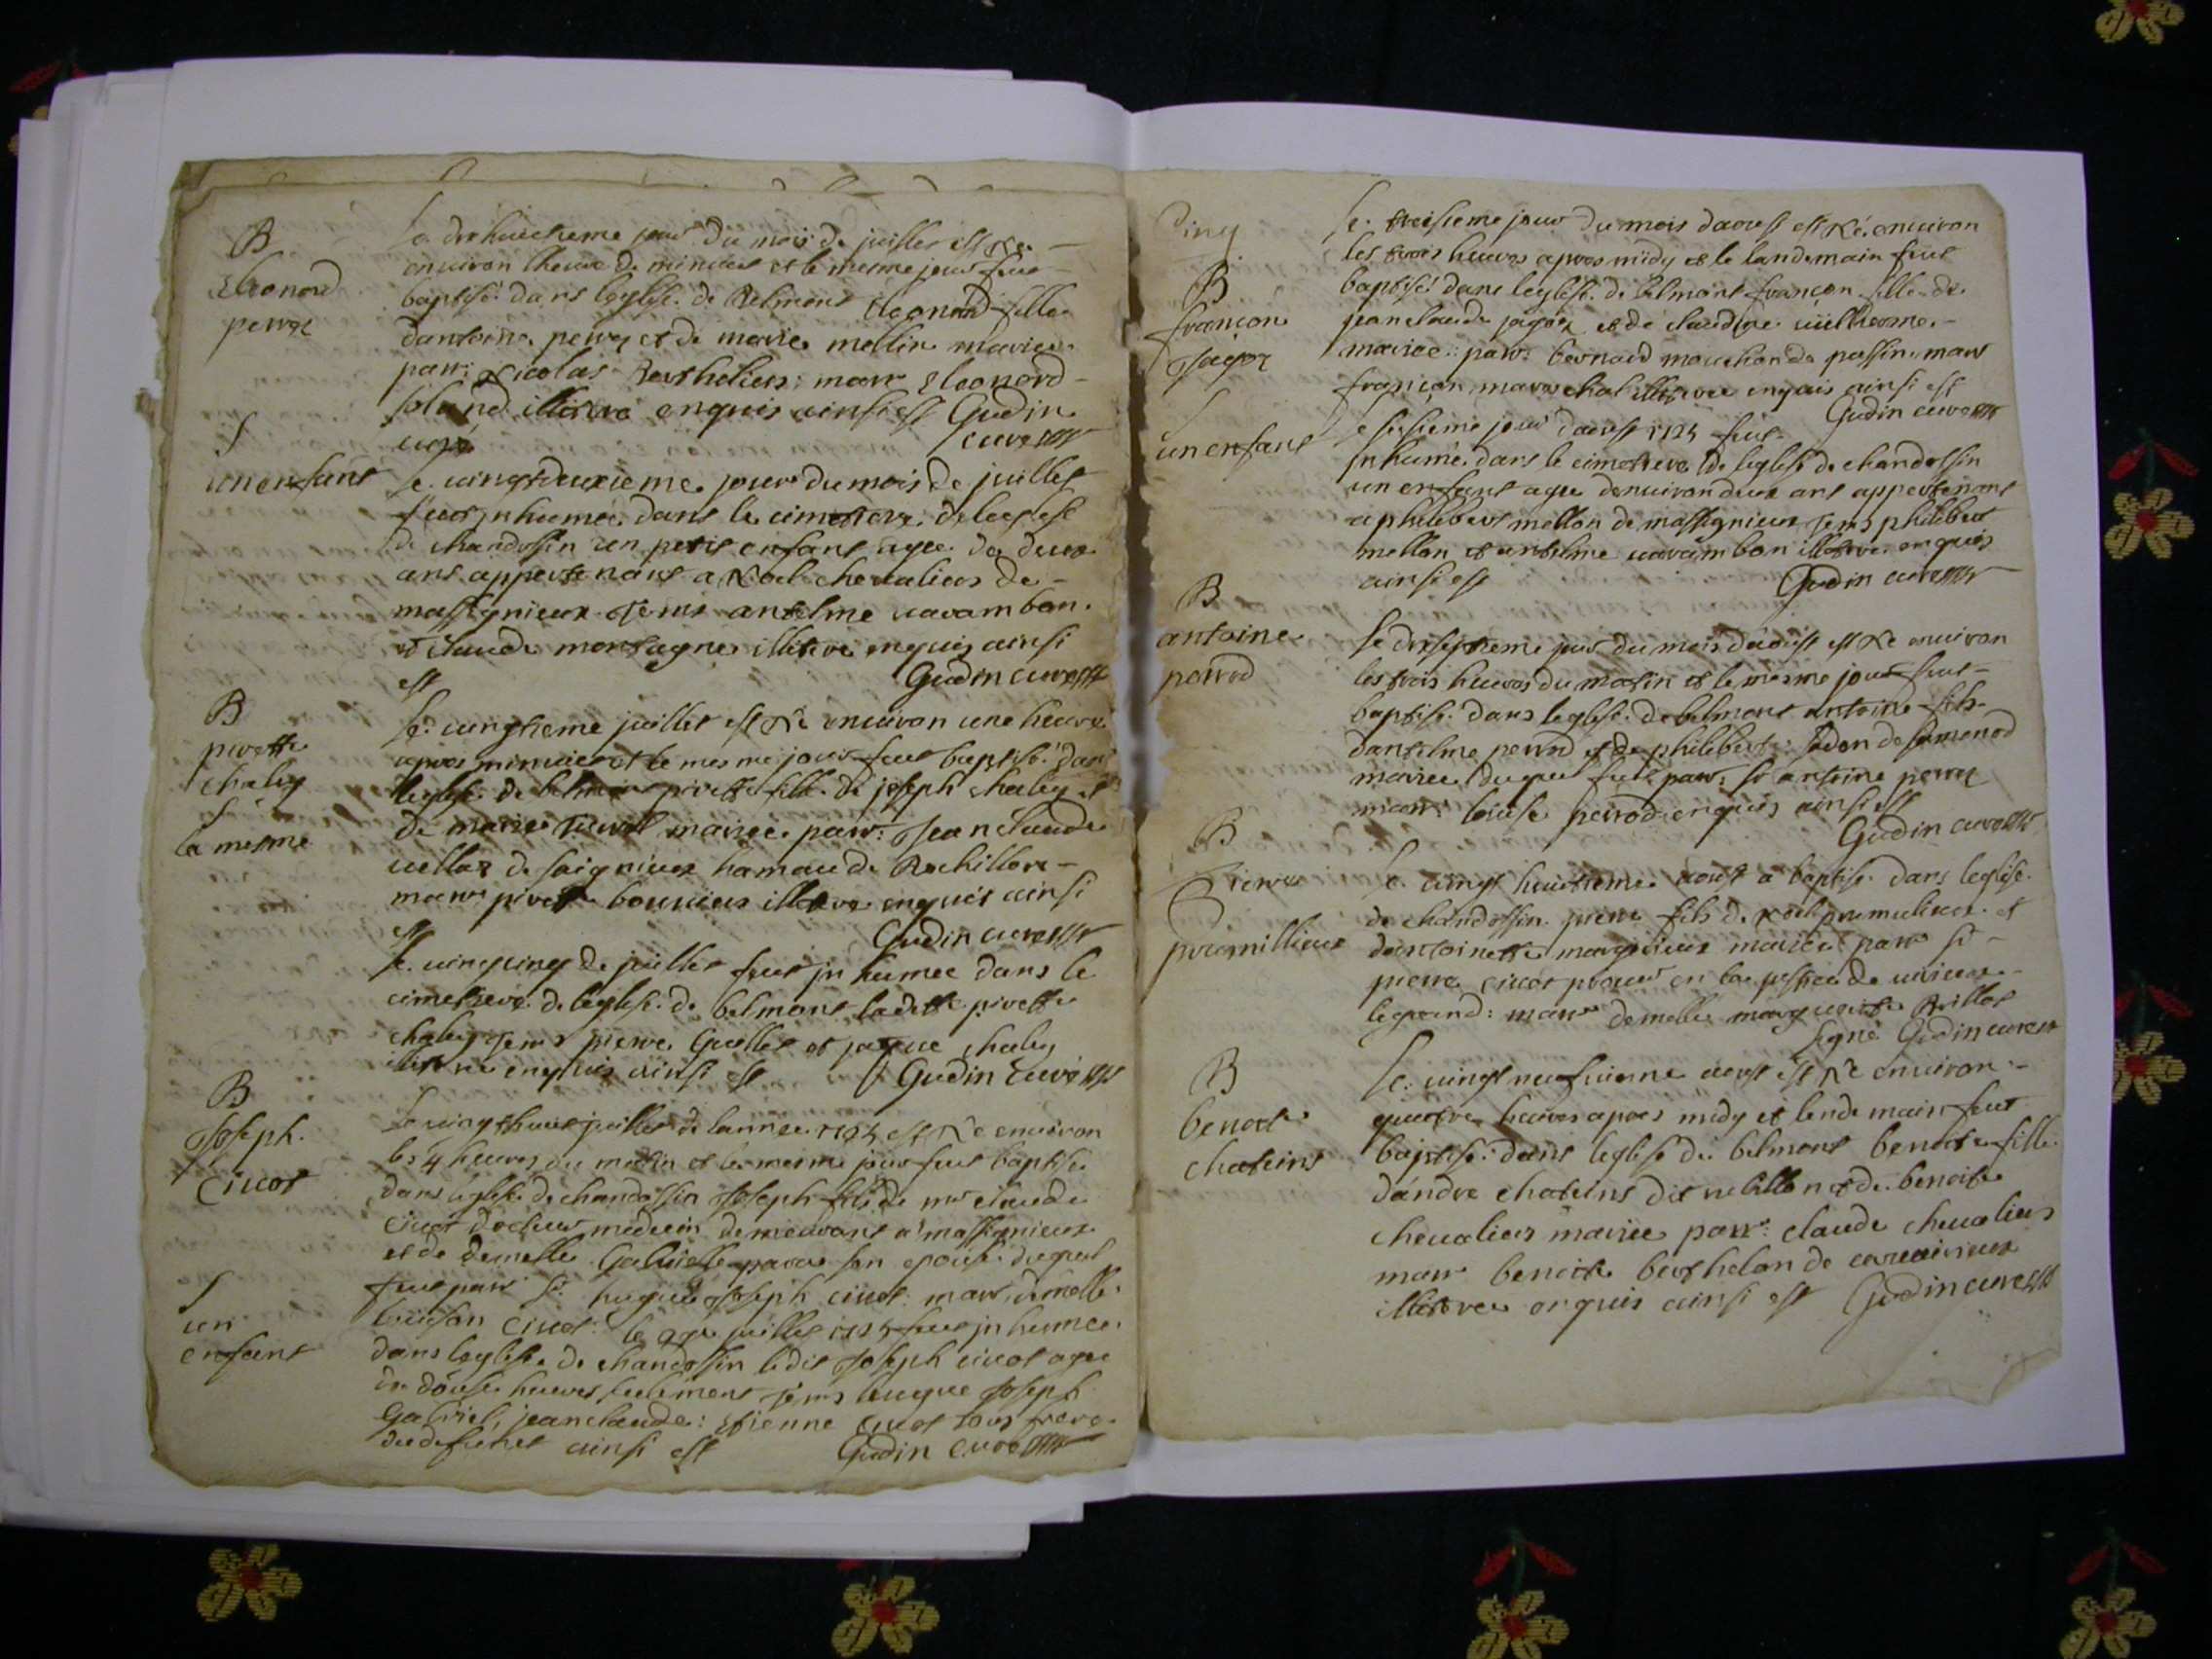 B
Eleonord
perret
Le dixhuictieme jour du mois de juillet est Né
environ lheure de minuict et le mesme jour fut
baptisé dans leglise de Belmont Eleonord fille
dantoine perret et de marie mellin mariez
parr: Nicolas Berthelier: marr Eleonord
illitere enquis ainsi est Gudin
curé
S
un enfant
Le vingtdeuxieme jour du mois de juillet
fut inhumée dans le cimettere de leglise
de chandossin un petit enfant agee de deux
ans appartenant a Noel chevalier de
massignieux Tems anselme varambon
et claude montagne illitere enquis ainsi
est Gudin curé
B
pirette
chaley
S
la mesme
Le vingtieme juillet est Né environ une heure
apres minuict et le mesme jour fut baptisé dans
leglise de belmont pirette fille de joseph chaley et
de marie mariee parr: Jean claude
vellat de saignieux hamau de Rochillore
marr pirette bouvier illitere enquis ainsi
est Gudin curé
Le vincincq de juillet fut in humee dans le
cimettere de leglise de belmont ladette pirette
chaley Tems pierre Guillet et jaque chaley
illitere enquis ainsi est Gudin curé
B
Joseph
Civot
Le vingthuit juillet de lannee 1724 est Né environ
les 4 heures du matin et le mesme jour fut baptisé
dans leglise de chandossin Joseph fils de mr claude
Civot docteur medecin demeurant a massignieux
et de demelle Gabrielle parra son epouse duquel
fut parr Sr hugue Joseph civot marr demelle
S
un
enfant
Louison Civot: le 29e juillet 1724 fut in humee
dans leglise de chandossin ledit Joseph civot agee
de douse heures seulement Tems hugue Joseph
Gabriel, jean claude: Etienne Civot tous frere
du defunct ainsi est Gudin curé
B
françon
Jagot
Le treisieme jour du mois daoust est Né environ
les trois heures apres midy et le landemain fut
baptisé dans leglise de belmont françon fille de
jean claude jagot et de claudine vullierme
mariee: parr: bernard mouchon de passin marr
françon marechal illitere enquis ainsi est
Gudin curé
S
un enfant
Le sisieme jour daoust 1724 fut
Inhumé dans le cimettere de leglise de chandossin
un enfant agee denviron deux ans appertenant
a philibert mellon de massignieux Tems philibert
mellon et anselme varambon illitere enquis
ainsi est Gudin curé
B
antoine
perrod
Le dixseptieme jour du mois daoust est Né environ
les trois heures du matin et le mesme jour fut
baptisé dans leglise de belmont antoine fils
danselme perrod et de philiberte
mariee duquel fut parr: Sr antoine perret
marr: louise perrod enquis ainsi est
Gudin curé
B
Pierre
prumillieux
Le vingt huictieme aoust a baptisé dans leglise
de chandossin pierre fils de Noel prumillieux et
dantoinette margnieux mariee parr Sr
pierre Civot
legrand: marr demelle marguerite Billot
signé Gudin curé
B
benoite
chateins
Le vingt neufvieme aoust est Né environ
quatre heures apres midy et lendemain fut
baptisé dans leglise de belmont benoite fille
dandre chateins dit rebillon et de benoite
chevalier mariee parr: claude chevalier
marr benoite berthelon de
illitere enquis ainsi est Gudin curé